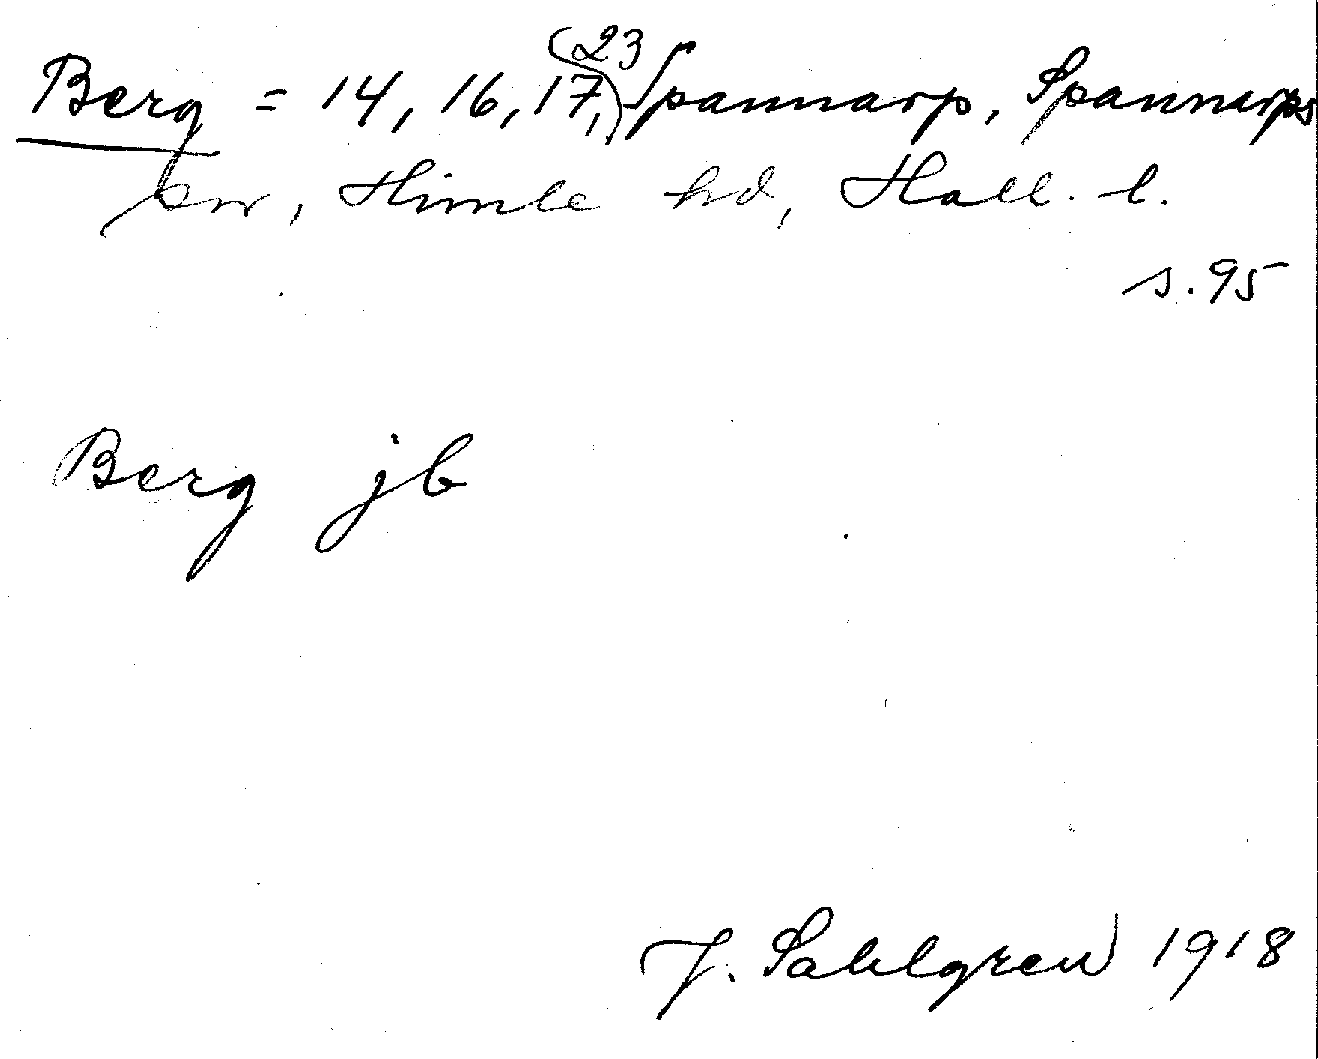 Berg = 14, 16, 17, 23 Spannarp, Spannarps
sn, Himle hd, Hall. l.
s. 95
Berg jb
J. Sahlgren 1918